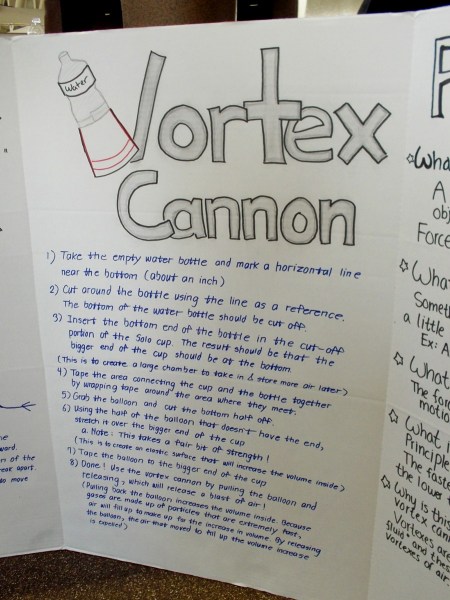 Water
Vortex
Cannon
1) Take the empty water bottle and mark a horizontal line
near the bottom (about an inch)
2) Cut around the bottle using the line as a reference.
The bottom of the water bottle should be cut off.
3) Insert the bottom end of the bottle in the cut-off
portion of the Solo cup. The result should be that the
bigger end of the cup should be at the bottom.
(This is to create a large chamber to take in & store more air later)
4) Tape the area connecting the cup and the bottle together
by wrapping tape around the area where they meet.
5) Grab the balloon and cut the bottom half off.
6) Using the half of the balloon that doesn't have the end,
stretch it over the bigger end of the cup
a. Note: This takes a fair bit of strength!
(This is to create an elastic surface that will increase the volume inside)
7) Tape the balloon to the bigger end of the cup
8) Done! Use the vortex cannon by pulling the balloon and
releasing, which will release a blast of air!
(Pulling back the balloon increases the volume inside. Because
gases are made up of particles that are extremely fast,
air will fill up to make up for the increase in volume. By releasing
the balloon, the air that moved to fill up the volume increase
is expelled)
What
A
obj
Force
What
Someth
a little
Ex: A
What
The for
motio
What i
Principle
The faste
the lower t
Why is this
Vortex cann
Vortexes are
fluid and thes
vortexes of air
ward.
rs of the
eak apart.
to move